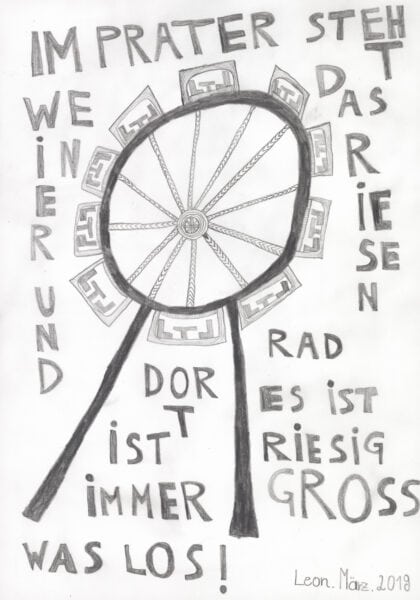 IM PRATER STEHT
DAS
RiESEN
RAD
ES iST
RIESIG
GROSS
WE
i IN
E
R
UND
DORT
iST
iMMER
WAS LOS!
Leon. März. 2019